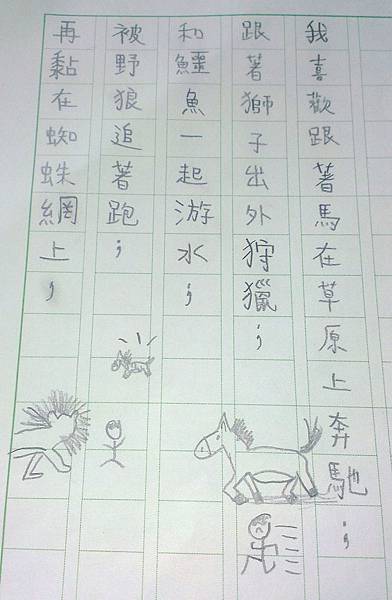 我喜歡跟著馬在草原上奔馳；
跟著獅子出外狩獵；
和鱷魚一起游水；
被野狼追著跑；
再黏在蜘蛛網上；